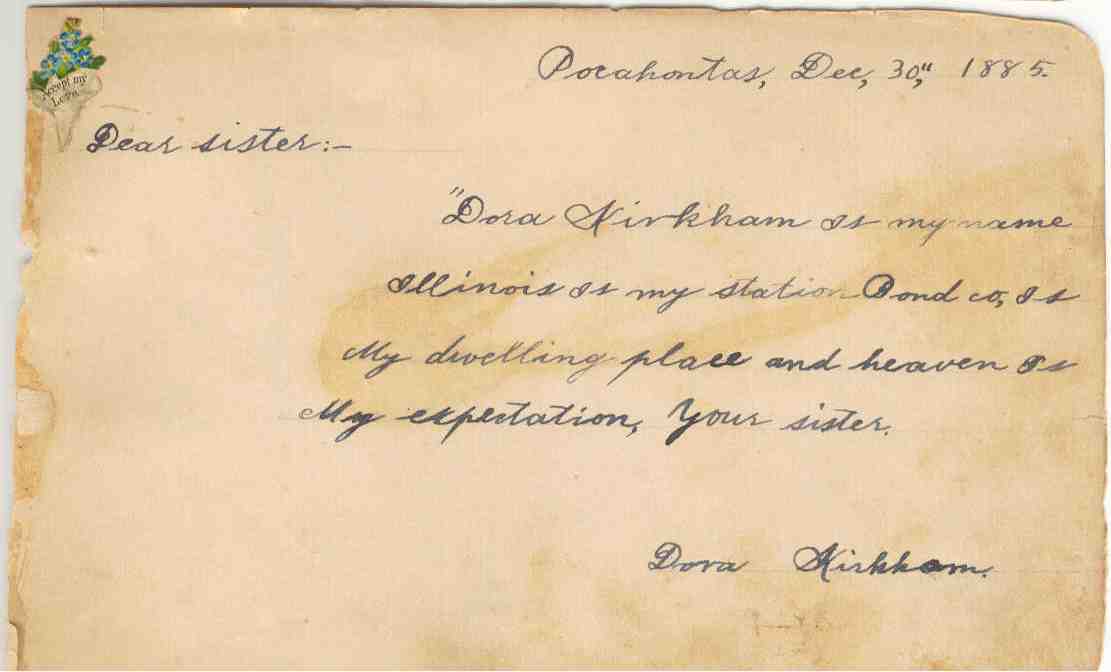 Accept my
Love.
Pocahontas, Dec, 30," 1885.
Dear sister:-
"Dora Kirkham Is my name
Illinois Is my station Bond co, Is
My dwelling place and heaven Is
My expectation, Your sister.
Dora Kirkham.